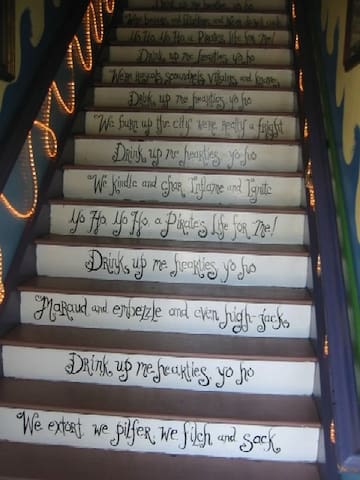 Drink up me hearties, yo ho
Yo Ho, Yo Ho, a Pirate's life for me!
Drink, up me hearties yo ho
We're rascals, scoundrels, villains, and knaves,
Drink, up me hearties, yo ho
"We burn up the city, we're really a fright
Drink, up me hearties, yo ho
We kindle and char, Inflame and Ignite
Yo Ho, Yo Ho, a Pirate's life for Me!
Drink, up me hearties, yo ho
Maraud and embezzle and even high-jack,
Drink, up me hearties, yo ho
We extort, we pilfer, we filch and sack,